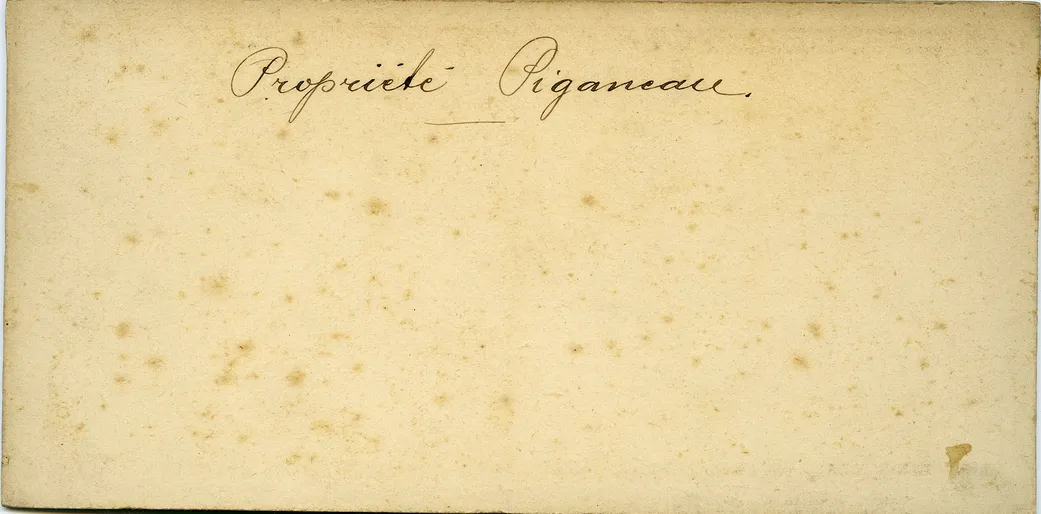 Propriété Piganeau.